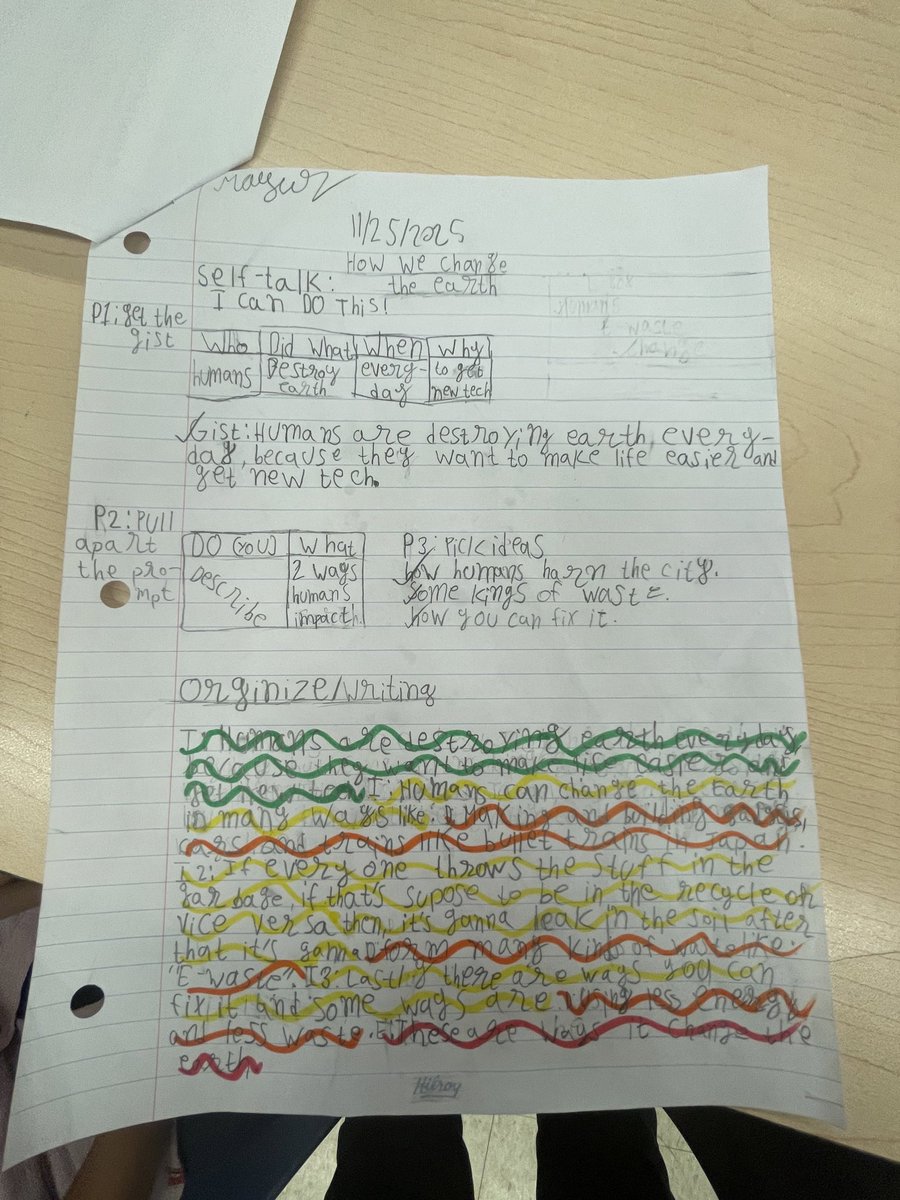 11/25/2025
How we change
the earth
Self-talk:
I can DO This!
P1: get the
gist
Who Did What When Why
humans Destroy earth every-day to get new tech
Gist: Humans are destroying earth every-
day, because they want to make life easier and
get new tech.
P2: Pull
apart
the pro-
mpt
DO (you) What
Describe 2 ways humans impact th
P3: Pick ideas
how humans harn the city.
Some kings of waste.
how you can fix it.
Orginize/writing
T: Humans are destroying earth everyday
because they want to make life easier and
get new tech. I: Humans can change the Earth
in many ways like: Making and building
cars and trains like bullet trains in Japan.
I2: If every one throws the stuff in the
garbage, if that's supose to be in the recycle or
vice versa then, it's ganna leak in the soil after
that it's ganna form many kind of waste like:
"E-waste". I3: Lastly there are ways you can
fix it and some ways are using less energy
and less waste. E: These are ways it change the
earth.
Hilroy